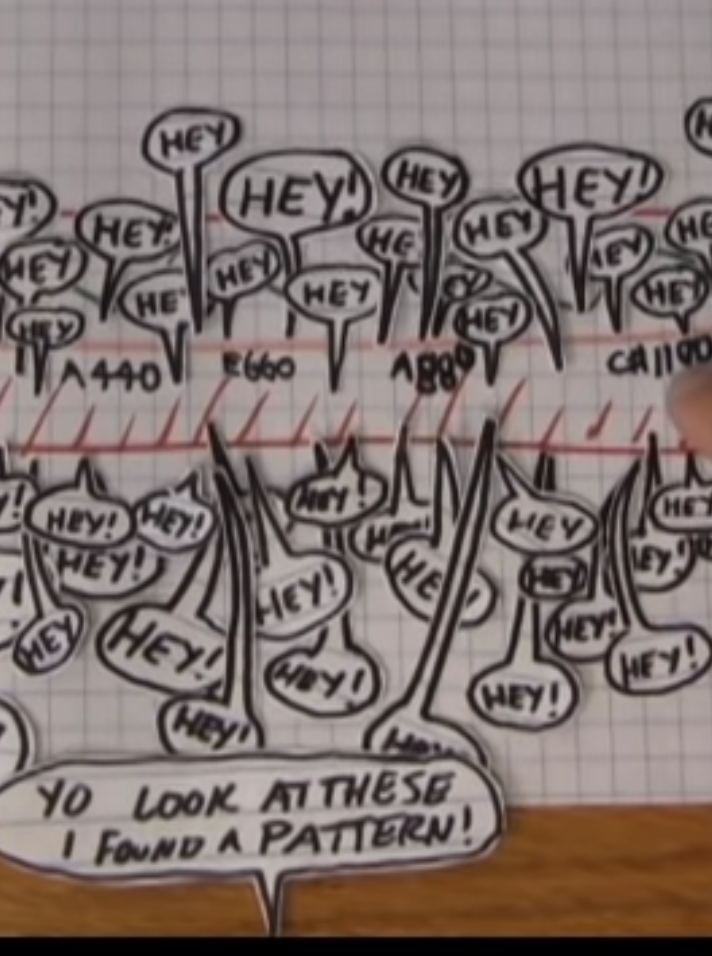 HEY
HEY!
HEY
HEY!
Y!
HEY!
HEY
HE
HEY
HEY
HE
HEY
HEY
HEY
HEY
A440
E660
A880
HEY!
HEY!
HEY!
HEY!
HEY
HEY
HEY!
HEY
HEY!
HEY!
HEY
HEY!
HEY!
HEY!
HEY!
HEY!
YO LOOK AT THESE
I FOUND A PATTERN!